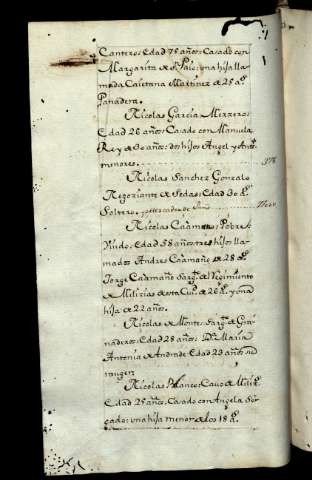 Cantero: Edad 75 años: Casado con
Margarita de Sn. Paio: una hija lla-
mada Caietana Martinez de 25 as.
Panadera.
Nicolas Garcia Mirrero:
Edad 26 años: Casado con Manuela
Rey de 30 años: dos hijos Angel y Anto.
menores.
Nicolas Sanchez Gonzalo
Negoziante de Sedas: Edad 30 as.
Soltero.
Nicolas Caamaño: Pobre:
Viudo: Edad 58 años: tres hijos lla-
mados Andres Caamaño de 28 as.
Jorge Caamaño Sargto. de Regimiento
de Milicias de esta Ciud. de 26 as. y ona
hija de 22 años.
Nicolas de Monte: Sargto. de Gra-
naderos: Edad 28 años: Maria
Antonia de Andrade Edad 29 años no
tiene
Nicolas Blanco: Cavo de Milis.
Edad 25 años: Casado con Angela
una hija menor de los 18 as.